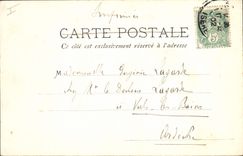 Imprimés
CARTE POSTALE
Ce côté est exclusivement réservé à l'adresse
Mademoiselle Eugénie Lagarde
chez Mr le Docteur Lagarde
à Vals les Bains
Ardèche